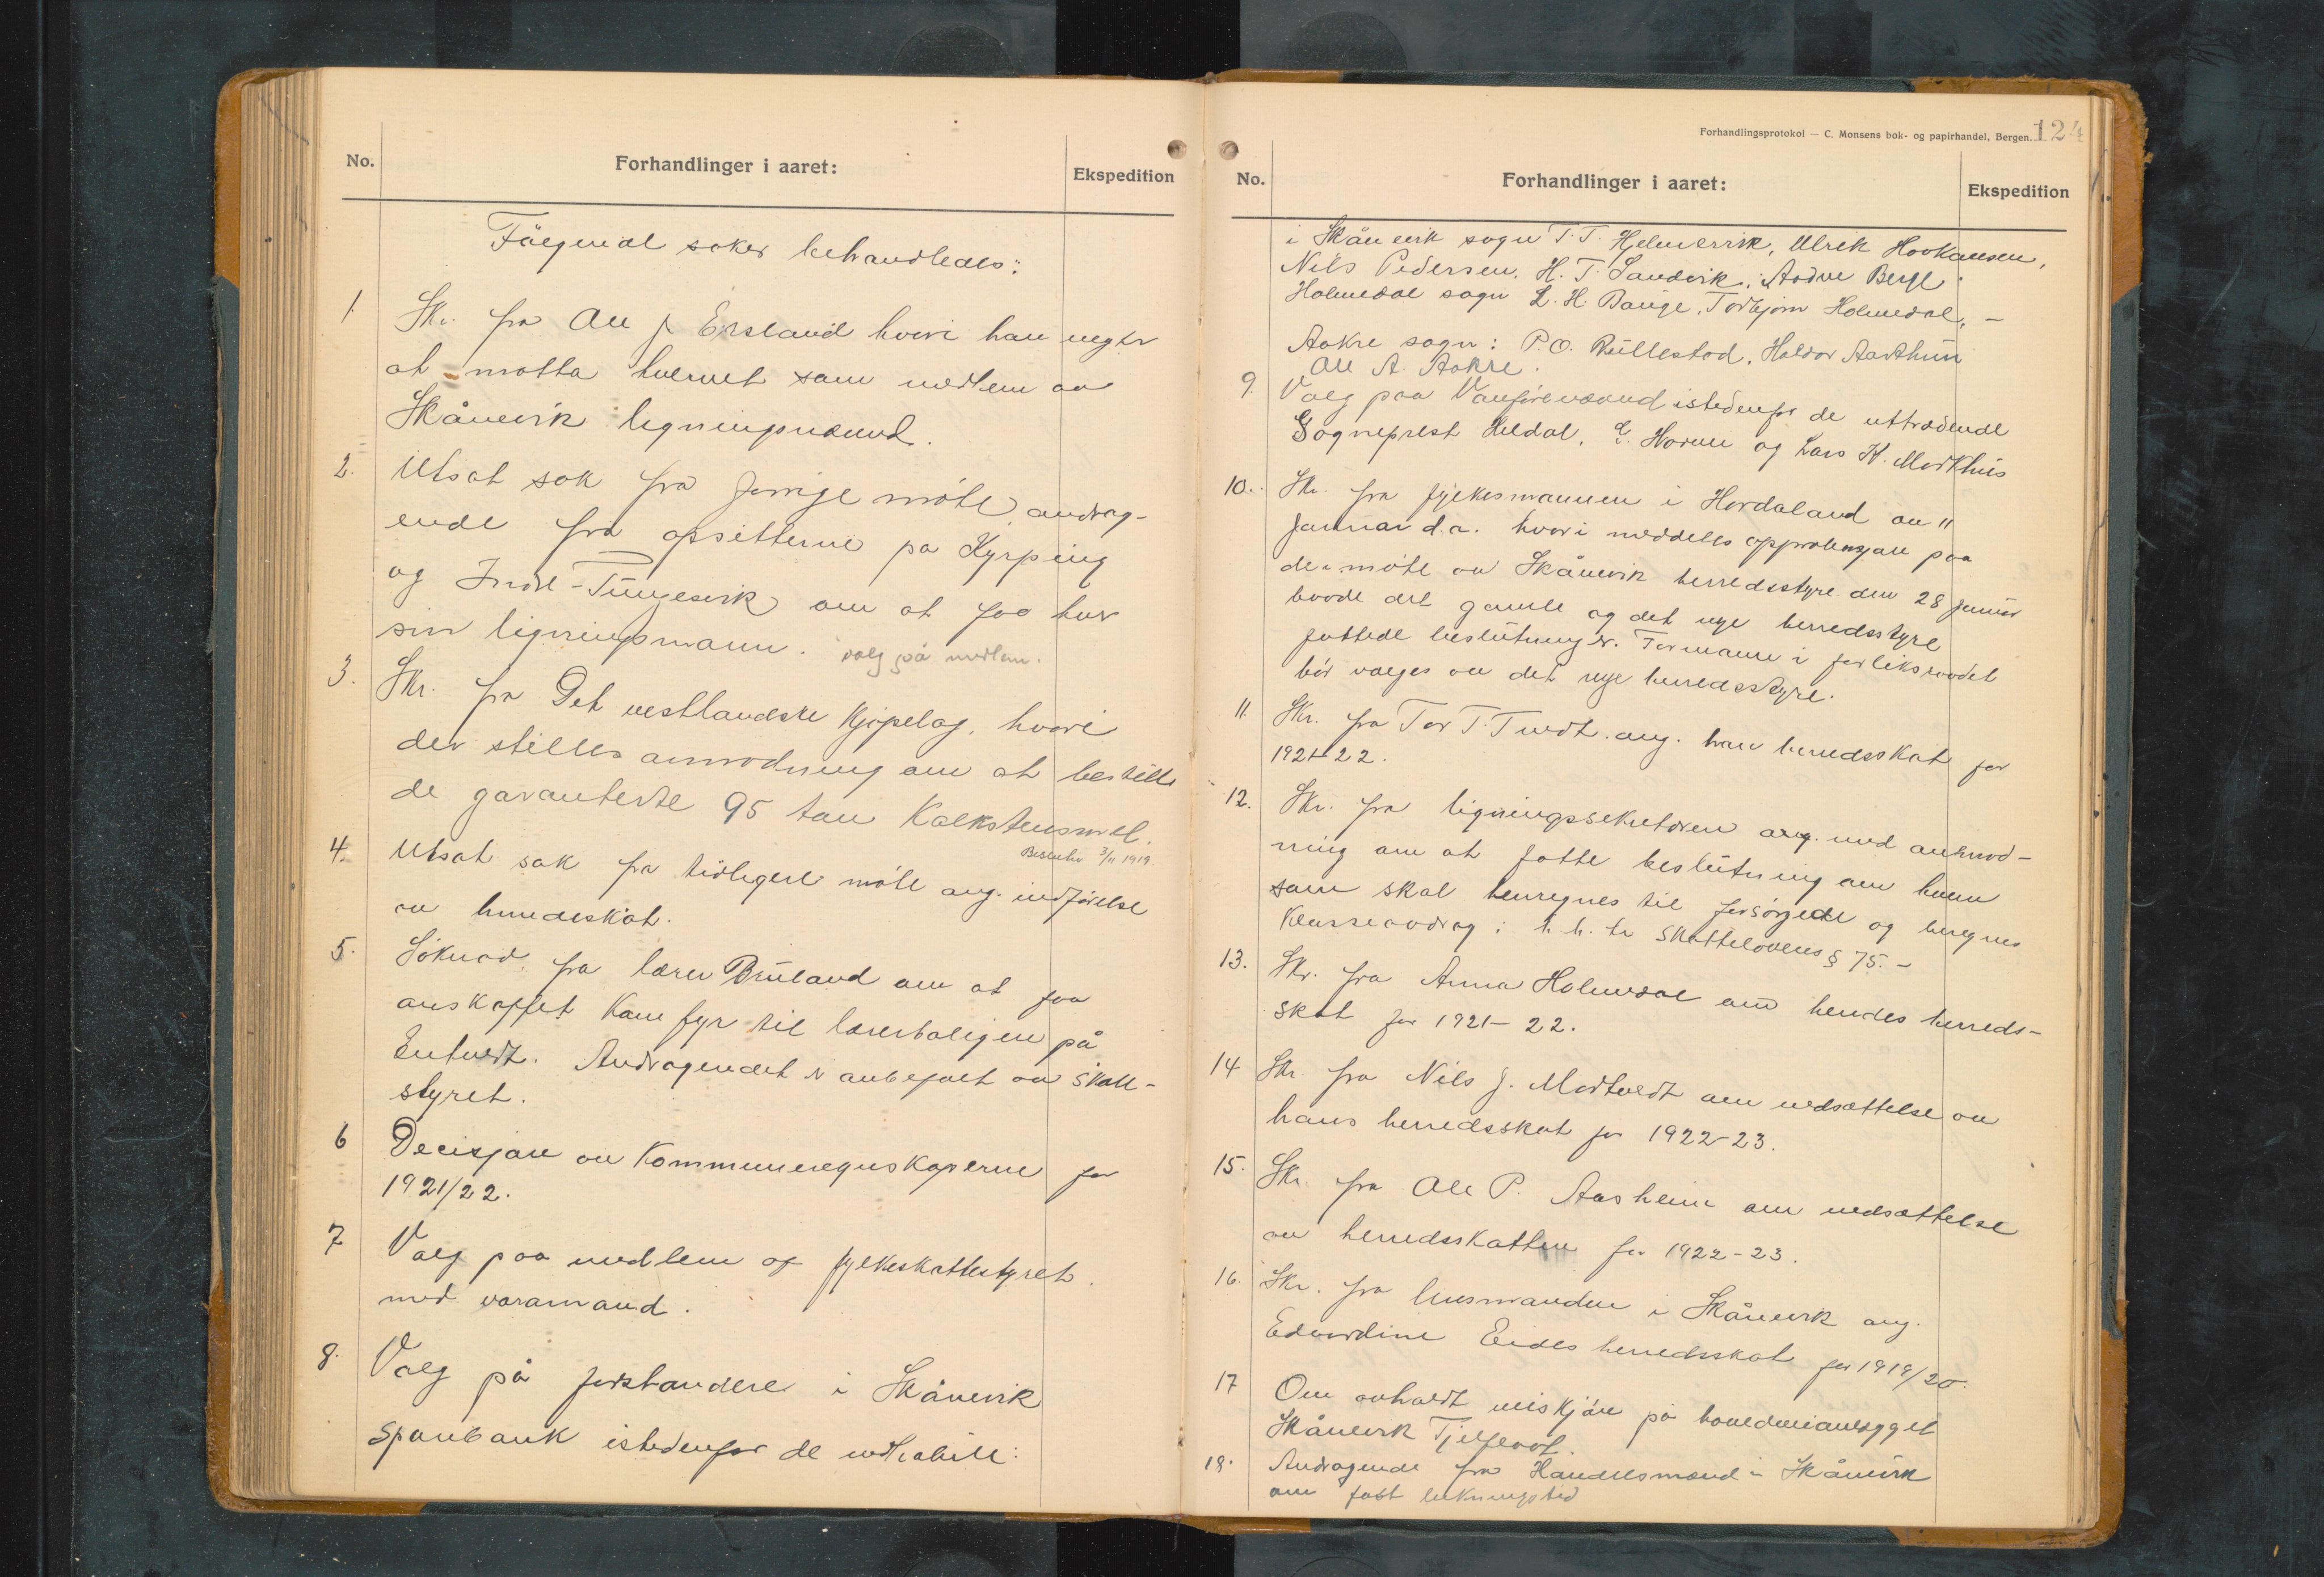 No.
Forhandlinger i aaret:
Ekspedition
Fölgende saker behandledes:
1. Skr. fra Ole J. Ersland hvori han negter
at motta hvervet som medlem av
Skånevik ligningsnævnd.
2. Utsat sak fra forrige möte, andrag-
ende fra opsitterne pa Kyrping
og Indre-Tungesvik om at faa hver
sin ligningsmann. valg på medlem.
3. Skr. fra Det vestlandske Kjöpelag, hvori
der stilles anmodning om at bestille
de garanterte 95 tonn Kalkstensmel.
Beslutn 3/11 1919.
4. Utsat sak fra tidligere möte ang. indförelse
av hundeskat.
5. Söknad fra lærer Bruland om at faa
anskaffet Kamfyr til lærerboligen på
Entvedt. Andragendet er anbefalt av skole-
styret.
6 Decisjon av Kommuneregnskaperne for
1921/22.
7 Valg paa medlem af fylkeskattestyret
med varamand.
8. Valg på forstandere i Skånevik
Sparebank istedenfor de uttrådte:
Forhandlingsprotokol — C. Monsens bok- og papirhandel, Bergen. 124
No.
Forhandlinger i aaret:
Ekspedition
i Skånevik sogn T. T. Hjelmervik, Ulrik Haakansen,
Nils Pedersen, H. T. Sandvik, Aadne Berge
Holmedal sogn L. H. Bauge, Torbjörn Holmedal, -
Aakre sogn: P. O. Rullestad, Haldor Aarthun
Ole A. Aakre.
9. Valg paa Vanförenævnd istedenfor de uttrædende
Sogneprest Heldal, E. Havne og Lars K. Markhus
10. Skr. fra fylkesmannen i Hordaland av 11
januar d.a. hvori meddeles approbasjon paa
de i möte av Skånevik herredsstyre den 28 januar
baade det gamle og det nye herredsstyre
fattede beslutninger. Formann i forliksraadet
bör vælges av det nye herredsstyre.
11. Skr. fra Tor T. Tvedt ang. hans herredsskat for
1921-22.
12. Skr. fra ligningssekretæren ang. med anmod-
ning om at fatte beslutning om hvem
som skal henregnes til forsörgede og beregnes
Klassefradrag i h. h. til Skattelovens § 75. -
13. Skr. fra Anna Holmedal om hendes herreds-
skat for 1921-22.
14 Skr. fra Nils J. Mortvedt om nedsættelse av
hans herredsskat for 1922-23.
15. Skr. fra Ole P. Aasheim om nedsættelse
av herredsskatten for 1922-23.
16. Skr. fra lensmanden i Skånevik ang.
Edvardine Eides herredsskat for 1919/20.
17 Om avholdt skjön på hovedveianlegget
Skånevik Tjelflaat.
18. Andragende fra Handelsmænd i Skånevik
om fast lukningstid